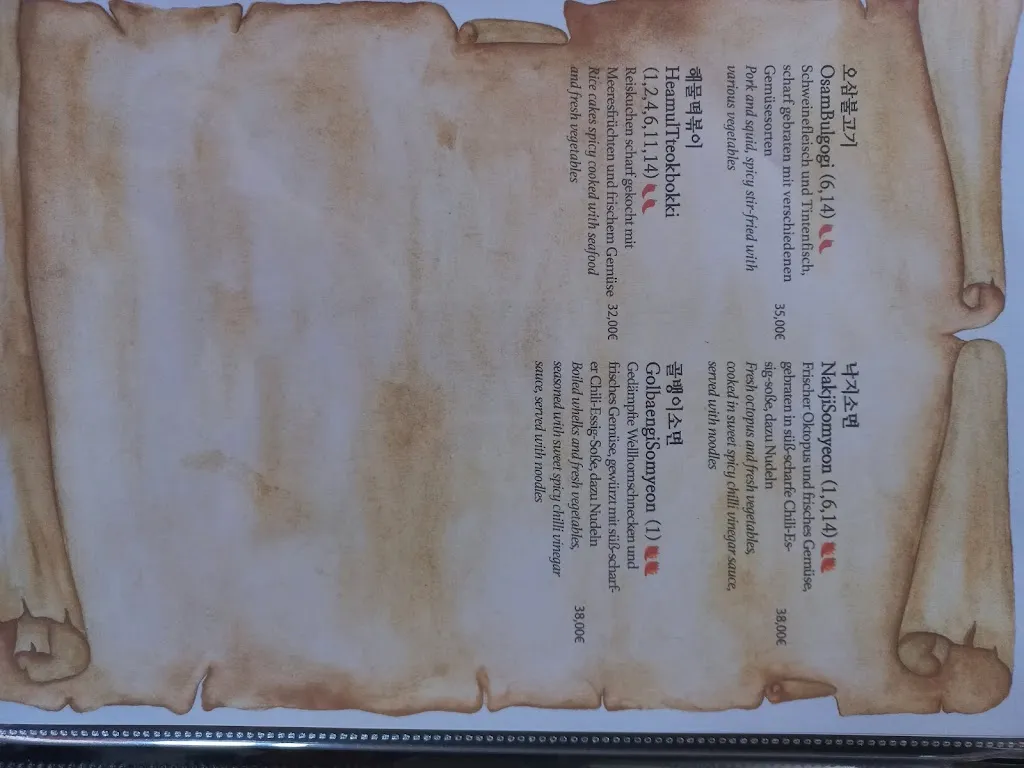 오삼불고기
OsamBulgogi (6,14)
Schweinefleisch und Tintenfisch,
scharf gebraten mit verschiedenen
Gemüsesorten
35,00€
Pork and squid, spicy stir-fried with
various vegetables
해물떡볶이
HeamulTteokbokki
(1,2,4,6,11,14)
Reiskuchen scharf gekocht mit
Meeresfrüchten und frischem Gemüse 32,00€
Rice cakes spicy cooked with seafood
and fresh vegetables
낙지소면
NakjiSomyeon (1,6,14)
Frischer Oktopus und frisches Gemüse,
gebraten in süß-scharfe Chili-Es-
sig-soße, dazu Nudeln
38,00€
Fresh octopus and fresh vegetables,
cooked in sweet spicy chilli vinegar sauce,
served with noodles
골뱅이소면
GolbaengiSomyeon (1)
Gedämpfte Wellhornschnecken und
frisches Gemüse, gewürzt mit süß-scharf-
er Chili-Essig-Soße, dazu Nudeln
38,00€
Boiled whelks and fresh vegetables,
seasoned with sweet spicy chilli vinegar
sauce, served with noodles